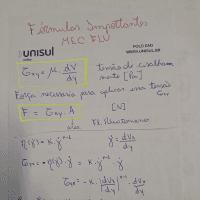 Fórmulas Importantes
MEC FLU
unisul
POLO EAD
σxy = μ. dV/dy
tensão de cisalhamento [Pa]
Força necessária para aplicar essa tensão σxy
F = σxy . A [N]
área
Fl. Newtoniano
η(γ̇) = K. γ̇ⁿ⁻¹ γ̇ = dVx/dy
σxy = η(γ̇). γ̇ = K. γ̇ⁿ⁻¹ γ̇
σxy = -K. |dVx/dy|ⁿ⁻¹ dVx/dy